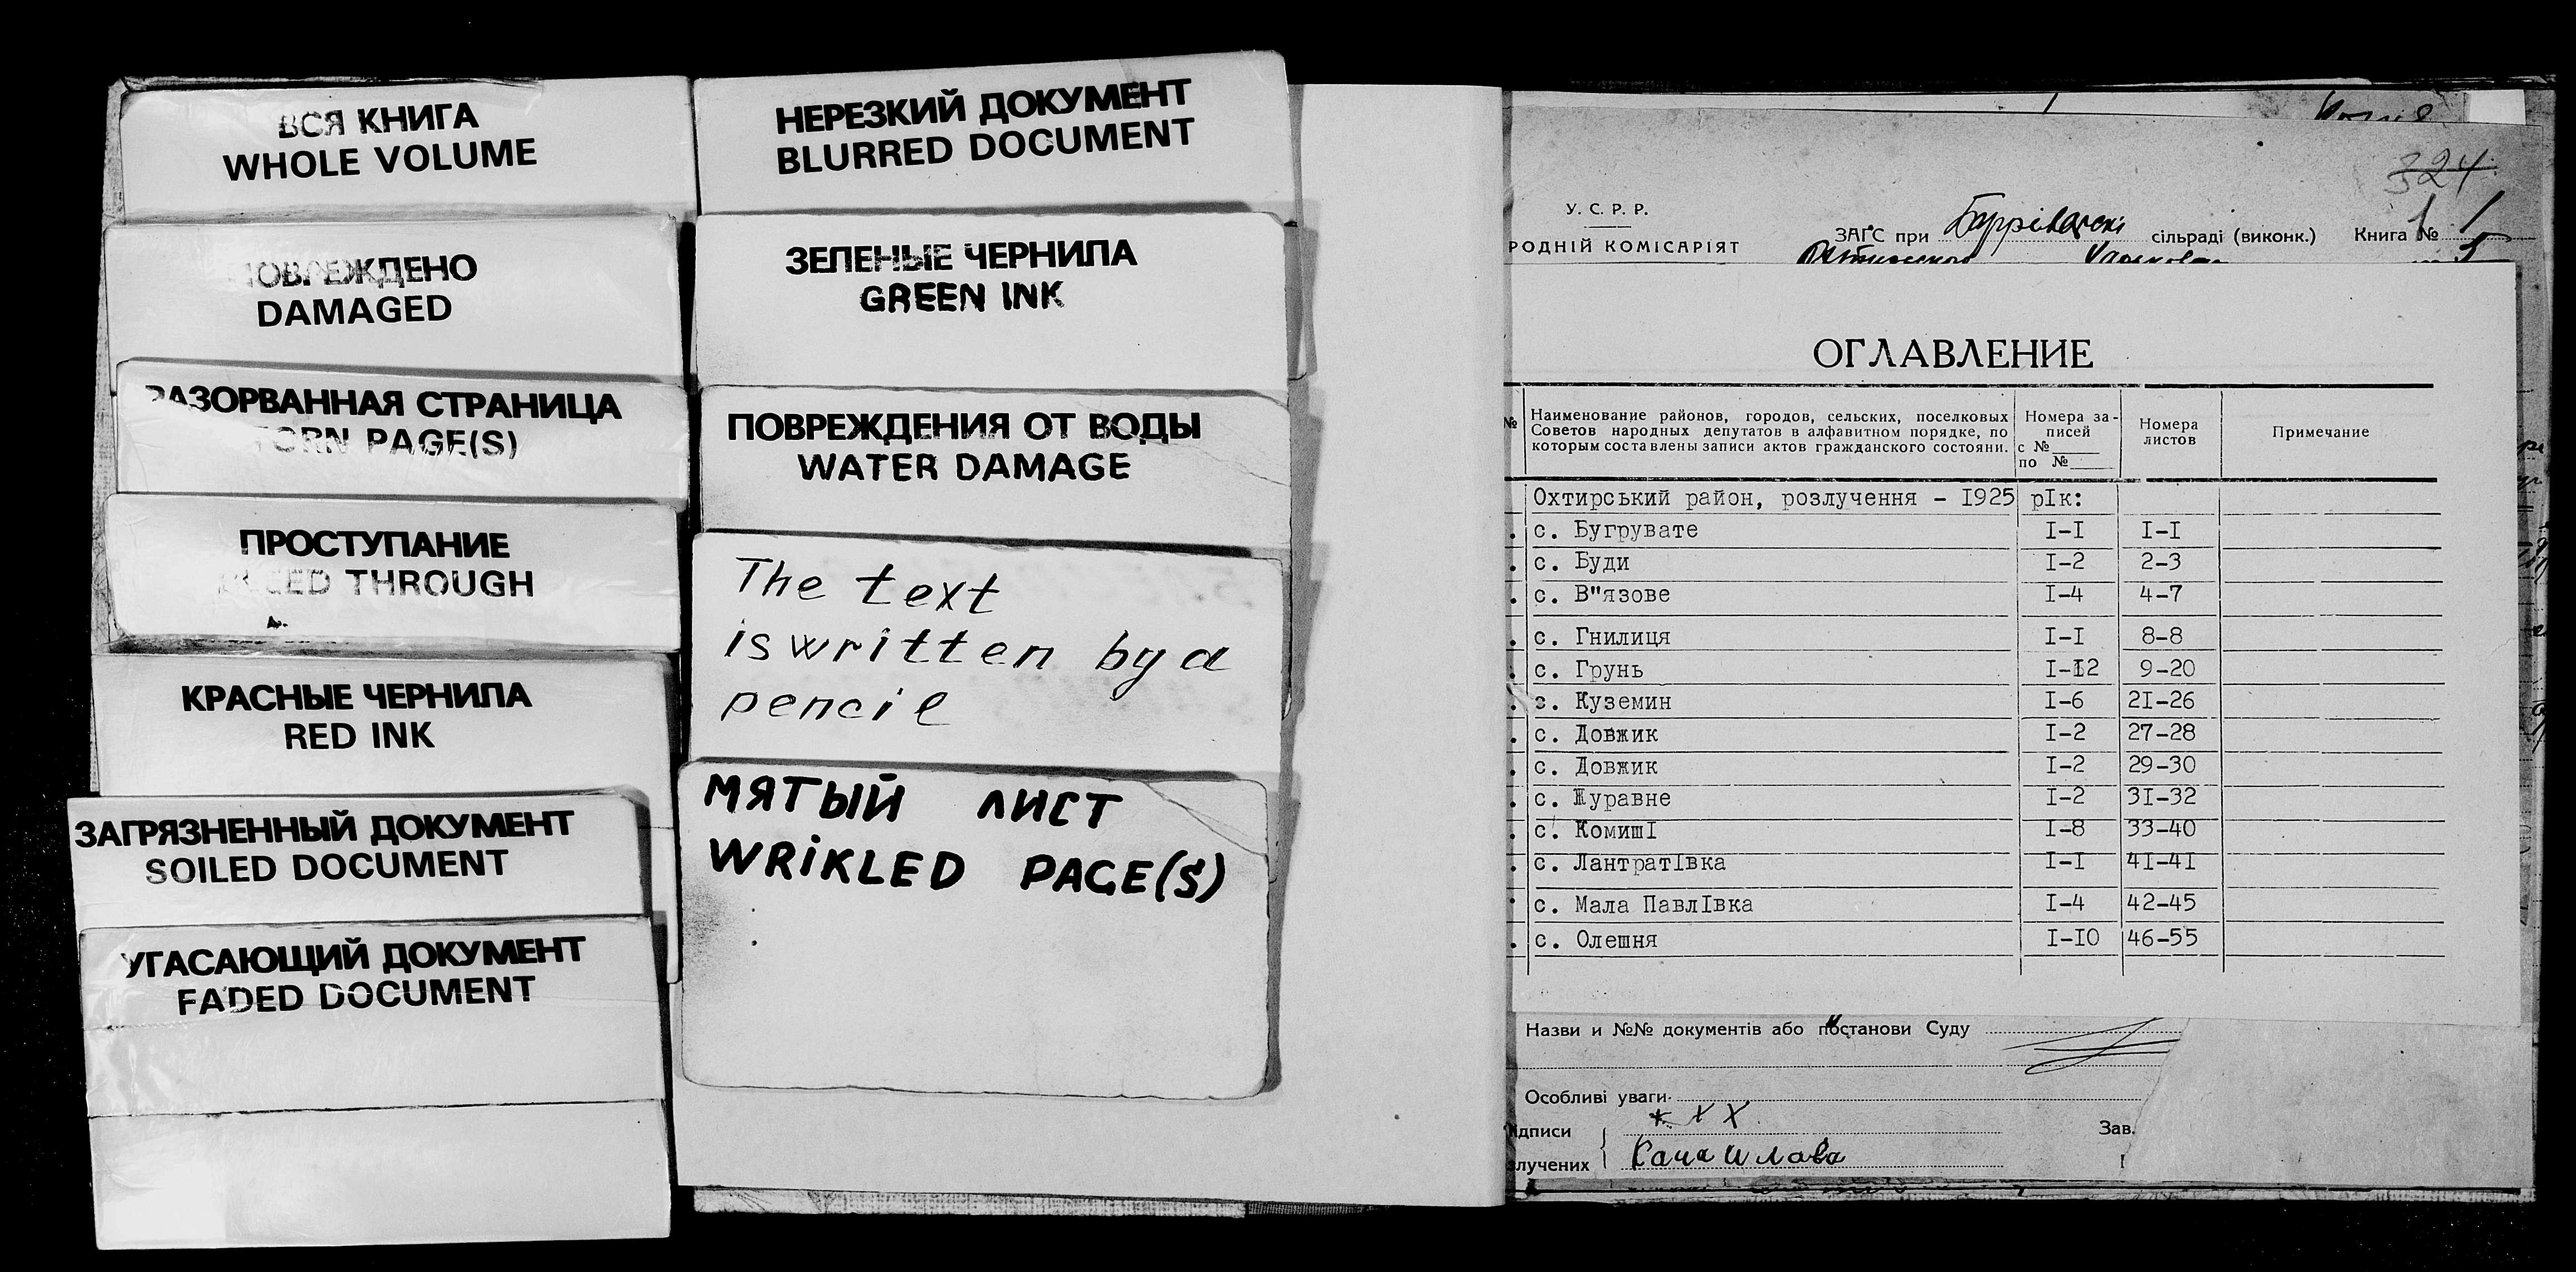 ВСЯ КНИГА
WHOLE VOLUME
ПОВРЕЖДЕНО
DAMAGED
РАЗОРВАННАЯ СТРАНИЦА
TORN PAGE(S)
ПРОСТУПАНИЕ
THROUGH
КРАСНЫЕ ЧЕРНИЛА
RED INK
ЗАГРЯЗНЕННЫЙ ДОКУМЕНТ
SOILED DOCUMENT
УГАСАЮЩИЙ ДОКУМЕНТ
FADED DOCUMENT
НЕРЕЗКИЙ ДОКУМЕНТ
BLURRED DOCUMENT
ЗЕЛЕНЫЕ ЧЕРНИЛА
GREEN INK
ПОВРЕЖДЕНИЯ ОТ ВОДЫ
WATER DAMAGE
The text
is written by a
pencil
МЯТЫЙ ЛИСТ
WRiKLED PAGE(S)
324
У. С. Р. Р.
ЗАГС при сільраді (виконк.) Книга № 1
РОДНІЙ КОМІСАРІЯТ
ОГЛАВЛЕНИЕ
№ Наименование районов, городов, сельских, поселковых Советов народных депутатов в алфавитном порядке, по которым составлены записи актов гражданского состояни. Номера записей с № по № Номера листов Примечание
Охтирський район, розлучення - I925 рIк:
с. Бугрувате I-I I-I
с. Буди I-2 2-3
с. В"язове I-4 4-7
с. Гнилиця I-I 8-8
с. Грунь I-I2 9-20
с. Куземин I-6 2I-26
с. Довжик I-2 27-28
с. Довжик I-2 29-30
с. Журавне I-2 3I-32
с. КомишI I-8 33-40
с. ЛантратIвка I-I 4I-4I
с. Мала ПавлIвка I-4 42-45
с. Олешня I-IO 46-55
Назви и №№ документів або постанови Суду
Особливі уваги
ідписи х х х Зав.
лучених